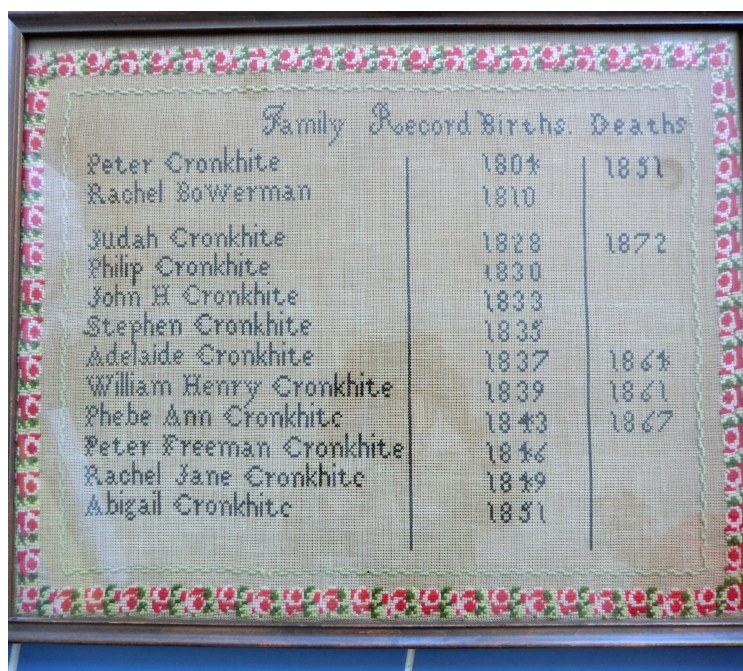 Family Record Births. Deaths
Peter Cronkhite 1804 1851
Rachel Bowerman 1810
Judah Cronkhite 1828 1872
Philip Cronkhite 1830
John H Cronkhite 1833
Stephen Cronkhite 1835
Adelaide Cronkhite 1837 1864
William Henry Cronkhite 1839 1861
Phebe Ann Cronkhite 1843 1867
Peter Freeman Cronkhite 1846
Rachel Jane Cronkhite 1849
Abigail Cronkhite 1851